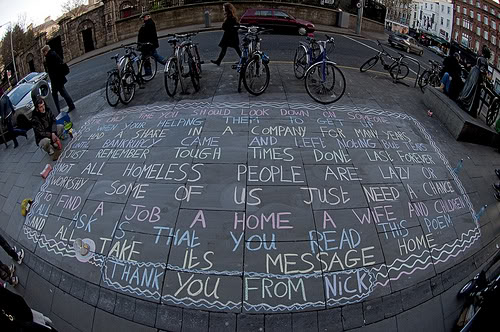 ONLY TIME YOU SHOULD LOOK DOWN ON SOMEONE
WHEN YOUR HELPING THEM TO GET UP
I HAD A SHARE IN A COMPANY FOR MANY YEARS
UNTIL BANKRUPTCY CAME AND LEFT NOTHING BUT TEARS
JUST REMEMBER TOUGH TIMES DONE LAST FOREVER
NOT ALL HOMELESS PEOPLE ARE LAZY OR
WORKSHY SOME OF US JUST NEED A CHANCE
TO FIND A JOB A HOME A WIFE AND CHILDREN
ALL I ASK IS THAT YOU READ THIS POEM
AND ALL TAKE ITS MESSAGE HOME
THANK YOU FROM NICK